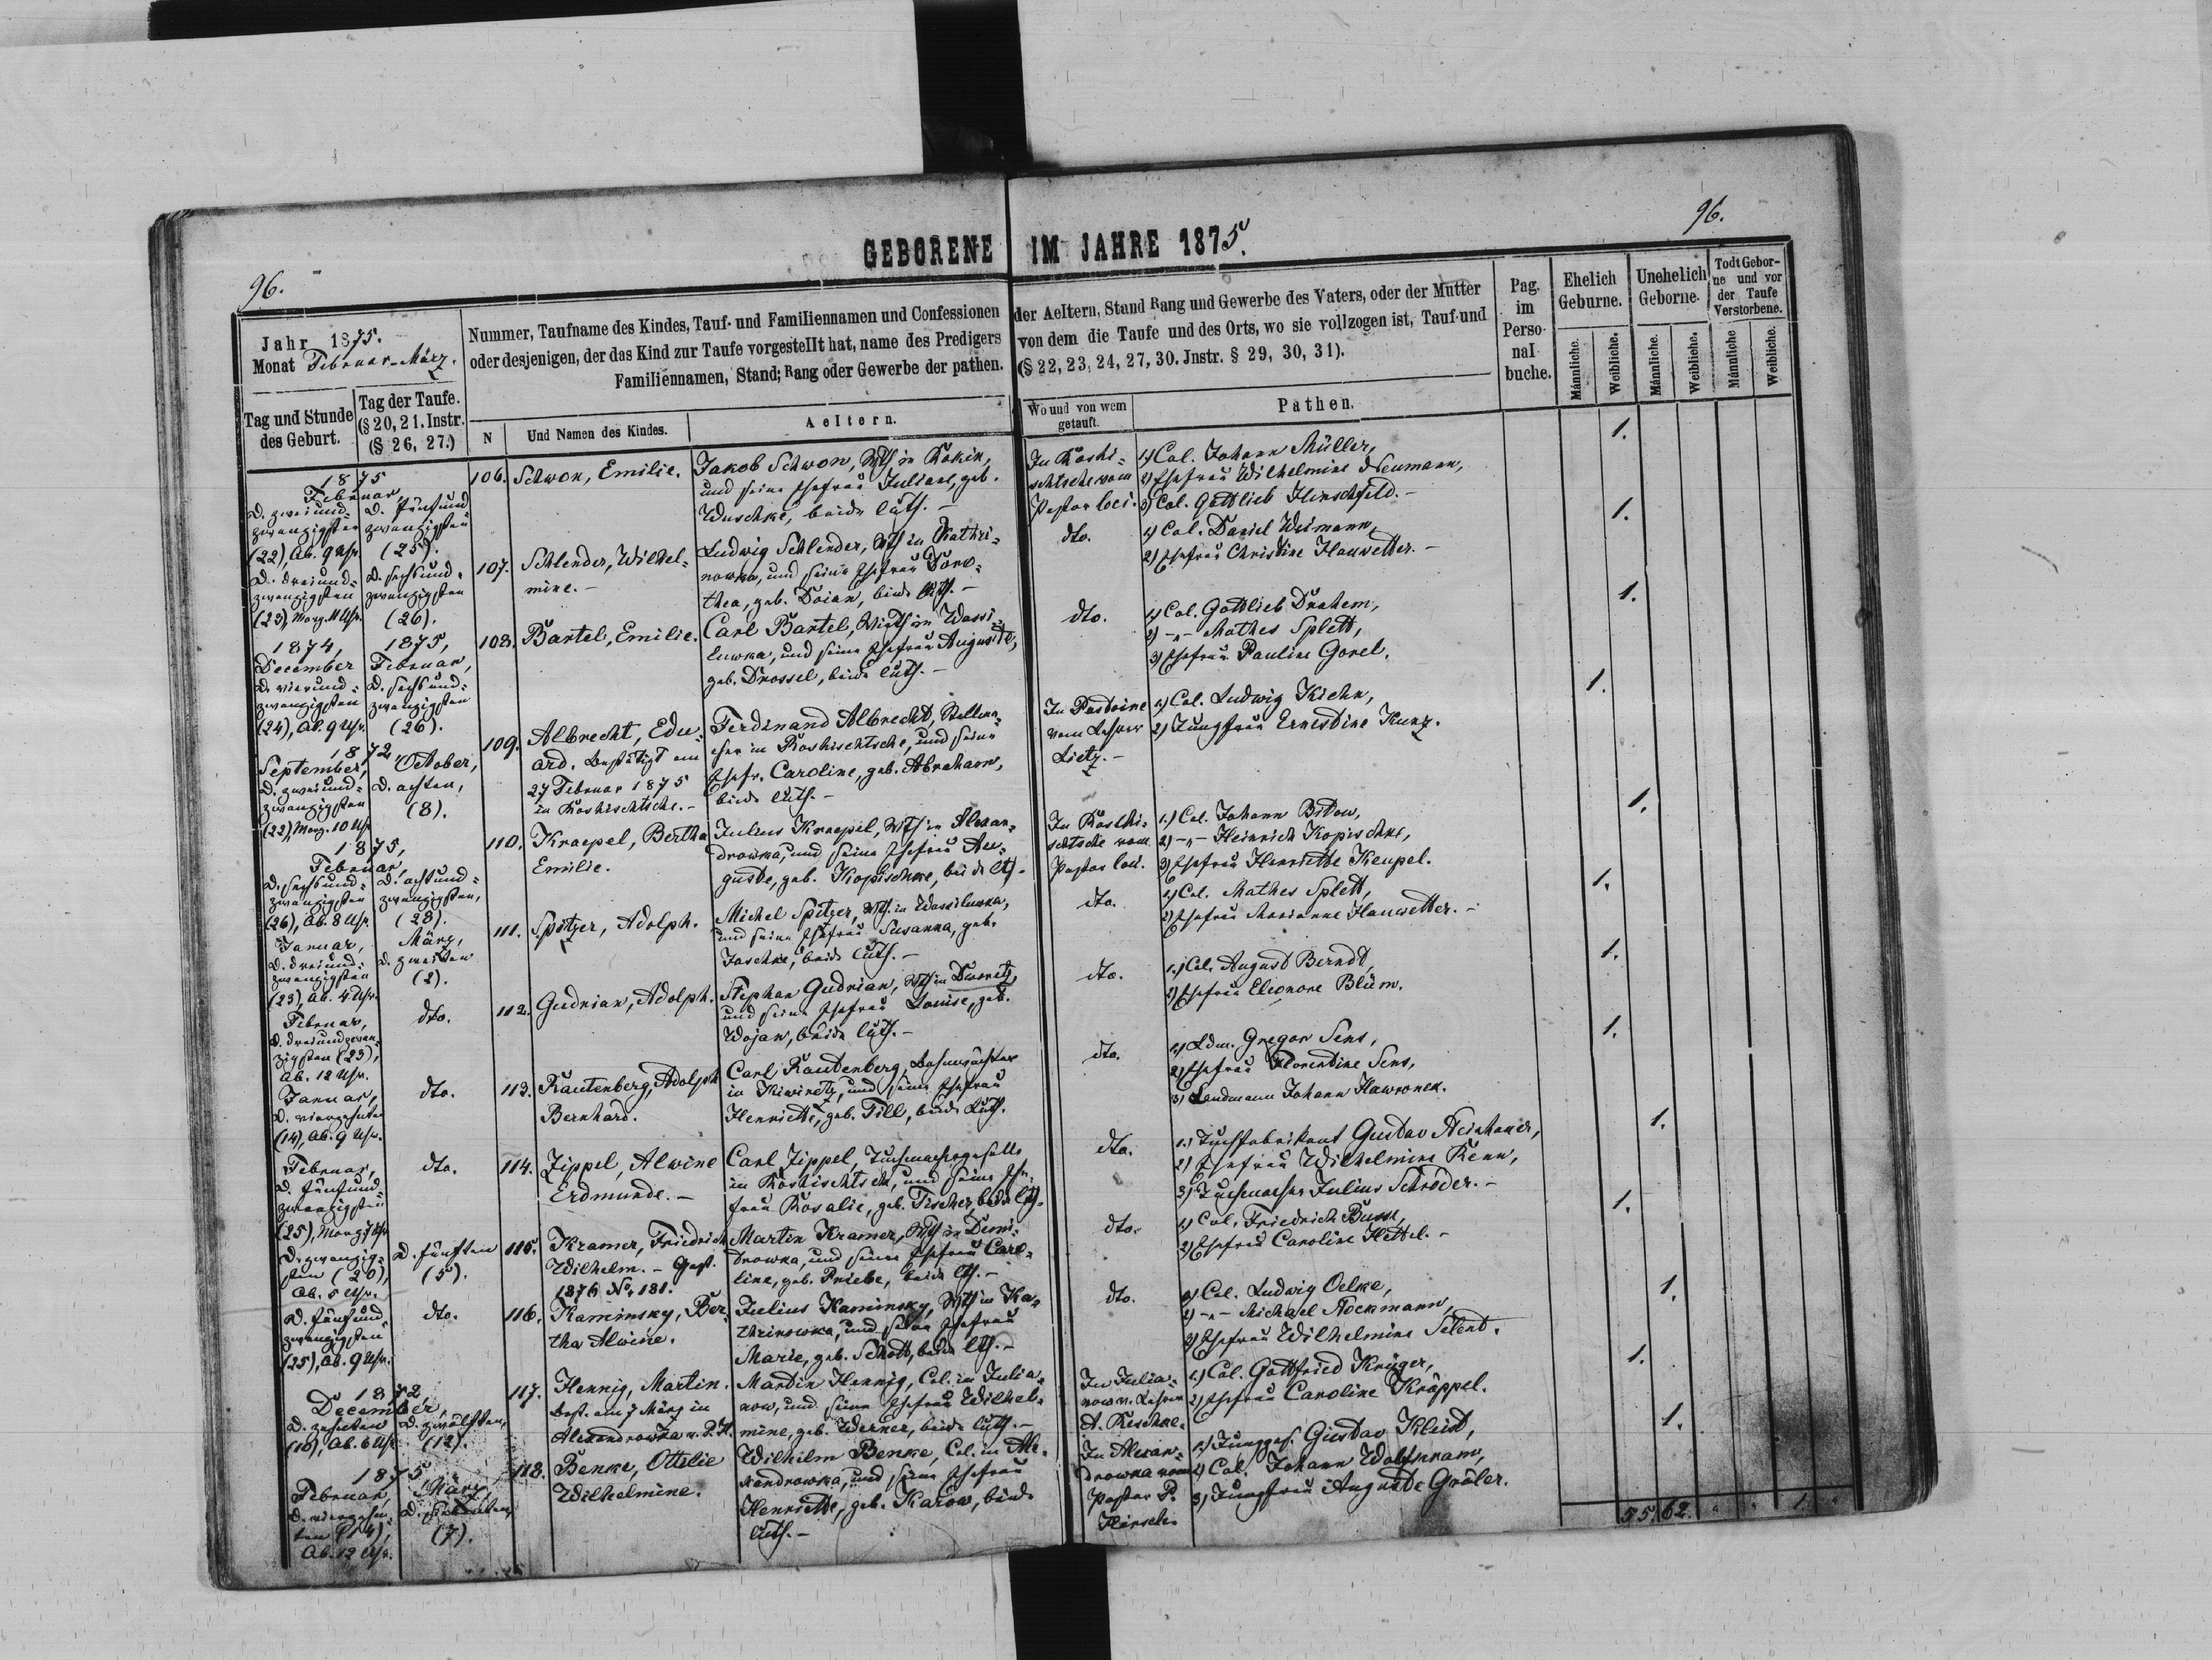 96.
96.
GEBORENE IM JAHRE 1875.
Jahr 1875.
Monat Februar-März.
Nummer, Taufname des Kindes, Tauf- und Familiennamen und Confessionen
oder desjenigen, der das Kind zur Taufe vorgestellt hat, name des Predigers
Familiennamen, Stand; Rang oder Gewerbe der pathen.
der Aeltern, Stand Rang und Gewerbe des Vaters, oder der Mutter
von dem die Taufe und des Orts, wo sie vollzogen ist, Tauf-und
(§ 22, 23, 24, 27, 30. Jnstr. § 29, 30, 31).
Pag. im Perso- nal buche.
Ehelich Geburne.
Unehelich Geborne.
Todt Gebor- ne und vor der Taufe Verstorbene.
Männliche. Weibliche. Männliche. Weibliche. Männliche Weibliche.
Tag und Stunde des Geburt.
Tag der Taufe. (§ 20, 21, Instr. (§ 26, 27.)
N
Und Namen des Kindes.
Aeltern.
Wo und von wem getauft.
Pathen.
1875
Februar,
D. zweiund-
zwanzigsten
(22), Ab. 9 Uhr.
D. fünfund
zwanzigsten
(25).
106. Schwon, Emilie.
Jakob Schwon, Wth in Rokin,
und seine Ehefrau Juliane, geb.
Wuschke, beide luth. -
In Roshi-
schtsche vom
Pastor loci.
1) Col. Johann Müller,
2) Ehefrau Wilhelmine Neumann,
3) Col. Gottlieb Hirschfeld. -
1.
D. dreiund-
zwanzigsten
(23), Morg. 11 Uhr.
D. sechsund-
zwanzigsten
(26).
107. Schlender, Wilhel-
mine. -
Ludwig Schlender, Wth in Kathri-
nowka, und seine Ehefrau Doro-
thea, geb. Doian, beide luth. -
dto.
1) Col. Daniel Weimann,
2) Ehefrau Christine Hauwetter. -
1.
1874,
December
D. vierund-
zwanzigsten
(24), Ab. 9 Uhr.
1875,
Februar,
D. sechsund-
zwanzigsten
(26).
108. Bartel, Emilie.
Carl Bartel, Wirth in Wassi-
luwka, und seine Ehefrau Auguste,
geb. Drossel, beide luth. -
dto.
1) Col. Gottlieb Draheim,
2) -„- Mathes Splett,
3) Ehefrau Pauline Gorel.
1.
1872
September,
D. zweiund-
zwanzigsten
(22), Morg. 10 Uhr
October,
D. achten,
(8).
109. Albrecht, Edu-
ard. bestätigt am
27 Februar 1875
in Roshischtsche. -
Ferdinand Albrecht, Stellma-
cher in Roshischtsche, und seine
Ehefr. Caroline, geb. Abraham,
beide luth. -
In Pastoine
vom Lehrer
Lietz. -
1) Col. Ludwig Kiehn,
2) Jungfrau Ernestine Kunz.
1.
1875,
Februar,
D. sechsund-
zwanzigsten
(26), Ab. 8 Uhr.
D. achtund-
zwanzigsten,
(28).
110. Kraepel, Bertha
Emilie.
Julius Kraepel, Wth in Alexan-
drowka, und seine Ehefrau Au-
guste, geb. Kopischke, beide lth.
In Roshi-
schtsche vom
Pastor loci.
1.) Col. Johann Bitow,
2) -„- Heinrich Kopischke,
3) Ehefrau Henriette Keupel.
1.
Januar,
D. dreiund-
zwanzigsten
(23), Ab. 4 Uhr.
März,
D. zweiten
(2).
111. Spitzer, Adolph.
Michel Spitzer, Wth. in Wassiluwka,
und seine Ehefrau Susanna, geb.
Jaschke, beide luth. -
dto.
1) Col. Mathes Splett,
2) Ehefrau Marianne Hauwetter. -
1.
Februar,
D. dreiundzwan-
zigsten (23),
Ab. 12 Uhr.
dto.
112. Gudrian, Adolph.
Stephan Gudrian, Wth in Dworetz,
und seine Ehefrau Louise, geb.
Wojan, beide luth. -
dto.
1.) Col. August Berndt,
2) Ehefrau Eleonore Blüm.
1.
Januar,
D. vierzehnten
(14), Ab. 9 Uhr.
dto.
113. Rautenberg, Adolph
Bernhard.
Carl Rautenberg,
in Kiwiretz, und seine Ehefrau
Henriette, geb. Till, beide luth.
dto.
1) Ldm. Gregor Sens,
2) Ehefrau Florentine Sens,
3) Landmann Johann Hawronek.
1.
Februar,
D. fünfund-
zwanzigsten
(25), Morg. 7 Uhr
dto.
114. Zippel, Alwine
Erdmunde. -
Carl Zippel, Tuchmachergeselle
in Roshischtsch, und seine Ehe-
frau Rosalie, geb. Tischer, beide lth.
dto.
1.) Tuchfabrikant Gustav Steinhauer,
2) Ehefrau Wilhelmine Renn,
3) Tuchmacher Julius Schröder. -
1.
D. zwanzig-
sten (20),
Ab. 5 Uhr.
D. fünften
(5).
115. Kramer, Friedrich
Wilhelm. - Gest.
1876 No. 181.
Martin Kramer, Wth in Demi-
drowka, und seine Ehefrau Caro-
line, geb. Priebe, beide lth. -
dto.
1) Col. Friedrich Busse,
2) Ehefrau Caroline Hettel. -
1.
D. fünfund-
zwanzigsten
(25), Ab. 9 Uhr.
dto.
116. Kaminsky, Ber-
tha Alwine.
Julius Kaminsky, Wth in Ka-
thrinowka, und seine Ehefrau
Marie, geb. Schott, beide lth. -
dto.
1) Col. Ludwig Oelke,
2) -„- Michael Stockmann,
3) Ehefrau Wilhelmine Selent.
1.
1872
December,
D. zehnten
(10), Ab. 6 Uhr
D. zwölften,
(12).
117. Hennig, Martin.
best. am 7 März in
Alexandrowka v. P. H.
Martin Hennig, Col. in Julia-
now, und seine Ehefrau Wilhel-
mine, geb. Werner, beide luth. -
In Julia-
now v. Lehrer
A. Reschke.
1) Col. Gottfried Krüger,
2) Ehefrau Caroline Kröppel.
1.
1875
Februar,
D. vierzehn-
ten (14),
Ab. 12 Uhr.
März,
D. siebenten,
(7).
118. Benke, Ottilie
Wilhelmine.
Wilhelm Benke, Col. in Ale-
xandrowka, und seine Ehefrau
Henriette, geb. Karow, beide
luth. -
In Alexan-
drowka vom
Pastor P.
Hirsch.
1) Junggес. Gustav Kleist,
2) Col. Johann Wolfgram,
3) Jungfrau Auguste Gröler.
1.
55. 62. „ „ 1. „